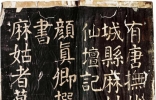 有唐撫
城縣麻
仙壇記
顏真卿撰
書
麻姑者葛